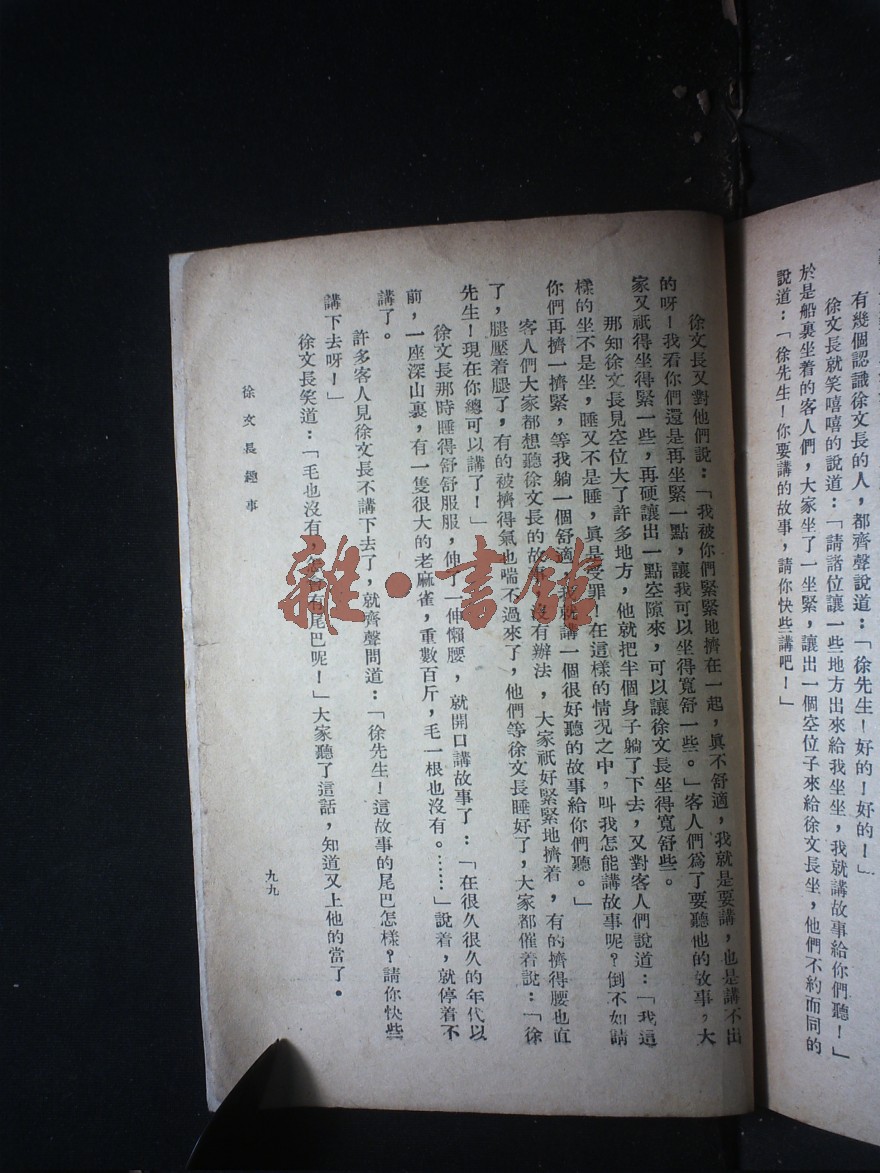 有幾個認識徐文長的人，都齊聲說道：「徐先生！好的！好的！」
徐文長就笑嘻嘻的說道：「請諸位讓一些地方出來給我坐坐，我就講故事給你們聽！」
於是船裏坐着的客人們，大家坐了一坐緊，讓出一個空位子來給徐文長坐，他們不約而同的
說道：「徐先生！你要講的故事，請你快些講吧！」
徐文長又對他們說：「我被你們緊緊地擠在一起，眞不舒適，我就是要講，也是講不出
的呀！我看你們還是再坐緊一點，讓我可以坐得寬舒一些。」客人們爲了要聽他的故事，大
家又祇得坐得緊一些，再硬讓出一點空隙來，可以讓徐文長坐得寬舒些。
那知徐文長見空位大了許多地方，他就把半個身子躺了下去，又對客人們說道：「我這
樣的坐不是坐，睡又不是睡，眞是受罪！在這樣的情况之中，叫我怎能講故事呢？倒不如請
你們再擠一擠緊，等我躺一個舒適，我就講一個很好聽的故事給你們聽。」
客人們大家都想聽徐文長的故事，沒有辦法，大家祇好緊緊地擠着，有的擠得腰也直
了，腿壓着腿了，有的被擠得氣也喘不過來了，他們等徐文長睡好了，大家都催着說：「徐
先生！現在你總可以講了！」
徐文長那時睡得舒舒服服，伸了一伸懶腰，就開口講故事了：「在很久很久的年代以
前，一座深山裏，有一隻很大的老麻雀，重數百斤，毛一根也沒有。……」說着，就停着不
講了。
許多客人見徐文長不講下去了，就齊聲問道：「徐先生！這故事的尾巴怎樣？請你快些
講下去呀！」
徐文長笑道：「毛也沒有，怎會有尾巴呢！」大家聽了這話，知道又上他的當了。
徐文長趣事
九九
雜·書館